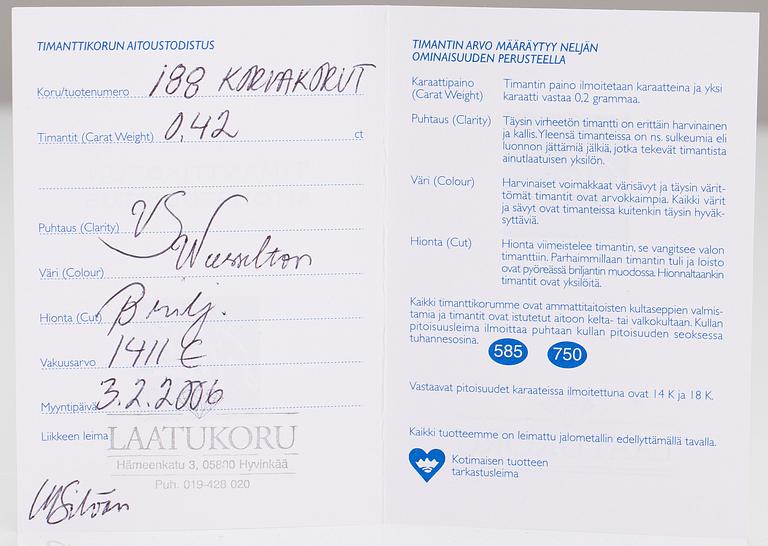 TIMANTTIKORUN AITOUSTODISTUS
Koru/tuotenumero 188 KORVAKORUT
Timantit (Carat Weight) 0,42 ct
Puhtaus (Clarity) VS
Väri (Colour) Wesselton
Hionta (Cut) Brilj.
Vakuusarvo 1411 €
Myyntipäivä 3.2.2006
Liikkeen leima LAATUKORU
Hämeenkatu 3, 05800 Hyvinkää
Puh. 019-428 020
TIMANTIN ARVO MÄÄRÄYTYY NELJÄN
OMINAISUUDEN PERUSTEELLA
Karaattipaino Timantin paino ilmoitetaan karaatteina ja yksi
(Carat Weight) karaatti vastaa 0,2 grammaa.
Puhtaus (Clarity) Täysin virheetön timantti on erittäin harvinainen
ja kallis. Yleensä timanteissa on ns. sulkeumia eli
luonnon jättämiä jälkiä, jotka tekevät timantista
ainutlaatuisen yksilön.
Väri (Colour) Harvinaiset voimakkaat värisävyt ja täysin värit-
tömät timantit ovat arvokkaimpia. Kaikki värit
ja sävyt ovat timanteissa kuitenkin täysin hyväk-
syttäviä.
Hionta (Cut) Hionta viimeistelee timantin, se vangitsee valon
timanttiin. Parhaimmillaan timantin tuli ja loisto
ovat pyöreässä briljantin muodossa. Hionnaltaankin
timantit ovat yksilöitä.
Kaikki timanttikorumme ovat ammattitaitoisten kultaseppien valmis-
tamia ja timantit on istutetut aitoon kelta- tai valkokultaan. Kullan
pitoisuusleima ilmoittaa puhtaan kullan pitoisuuden seoksessa
tuhannesosina. 585 750
Vastaavat pitoisuudet karaateissa ilmoitettuna ovat 14 K ja 18 K.
Kaikki tuotteemme on leimattu jalometallin edellyttämällä tavalla.
Kotimaisen tuotteen
tarkastusleima